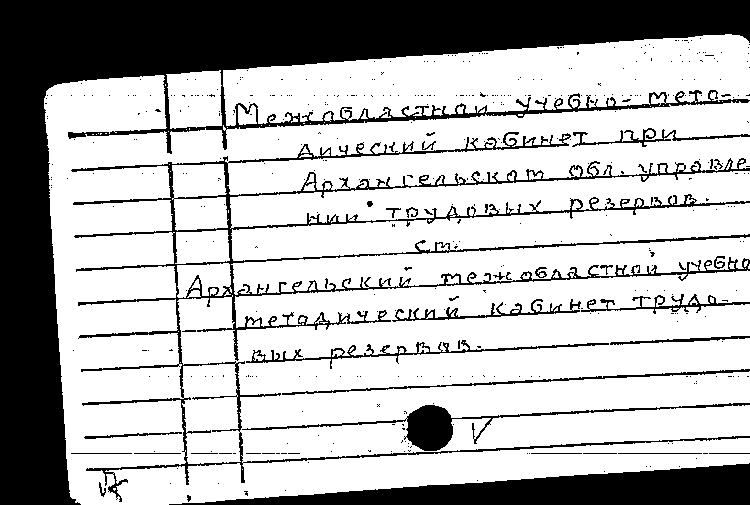 Межобластной учебно-мето-
дический кабинет при
Архангельском обл. управле
нии трудовых резервов.
см.
Архангельский межобластной учебно
методический кабинет трудо-
вых резервов.
V